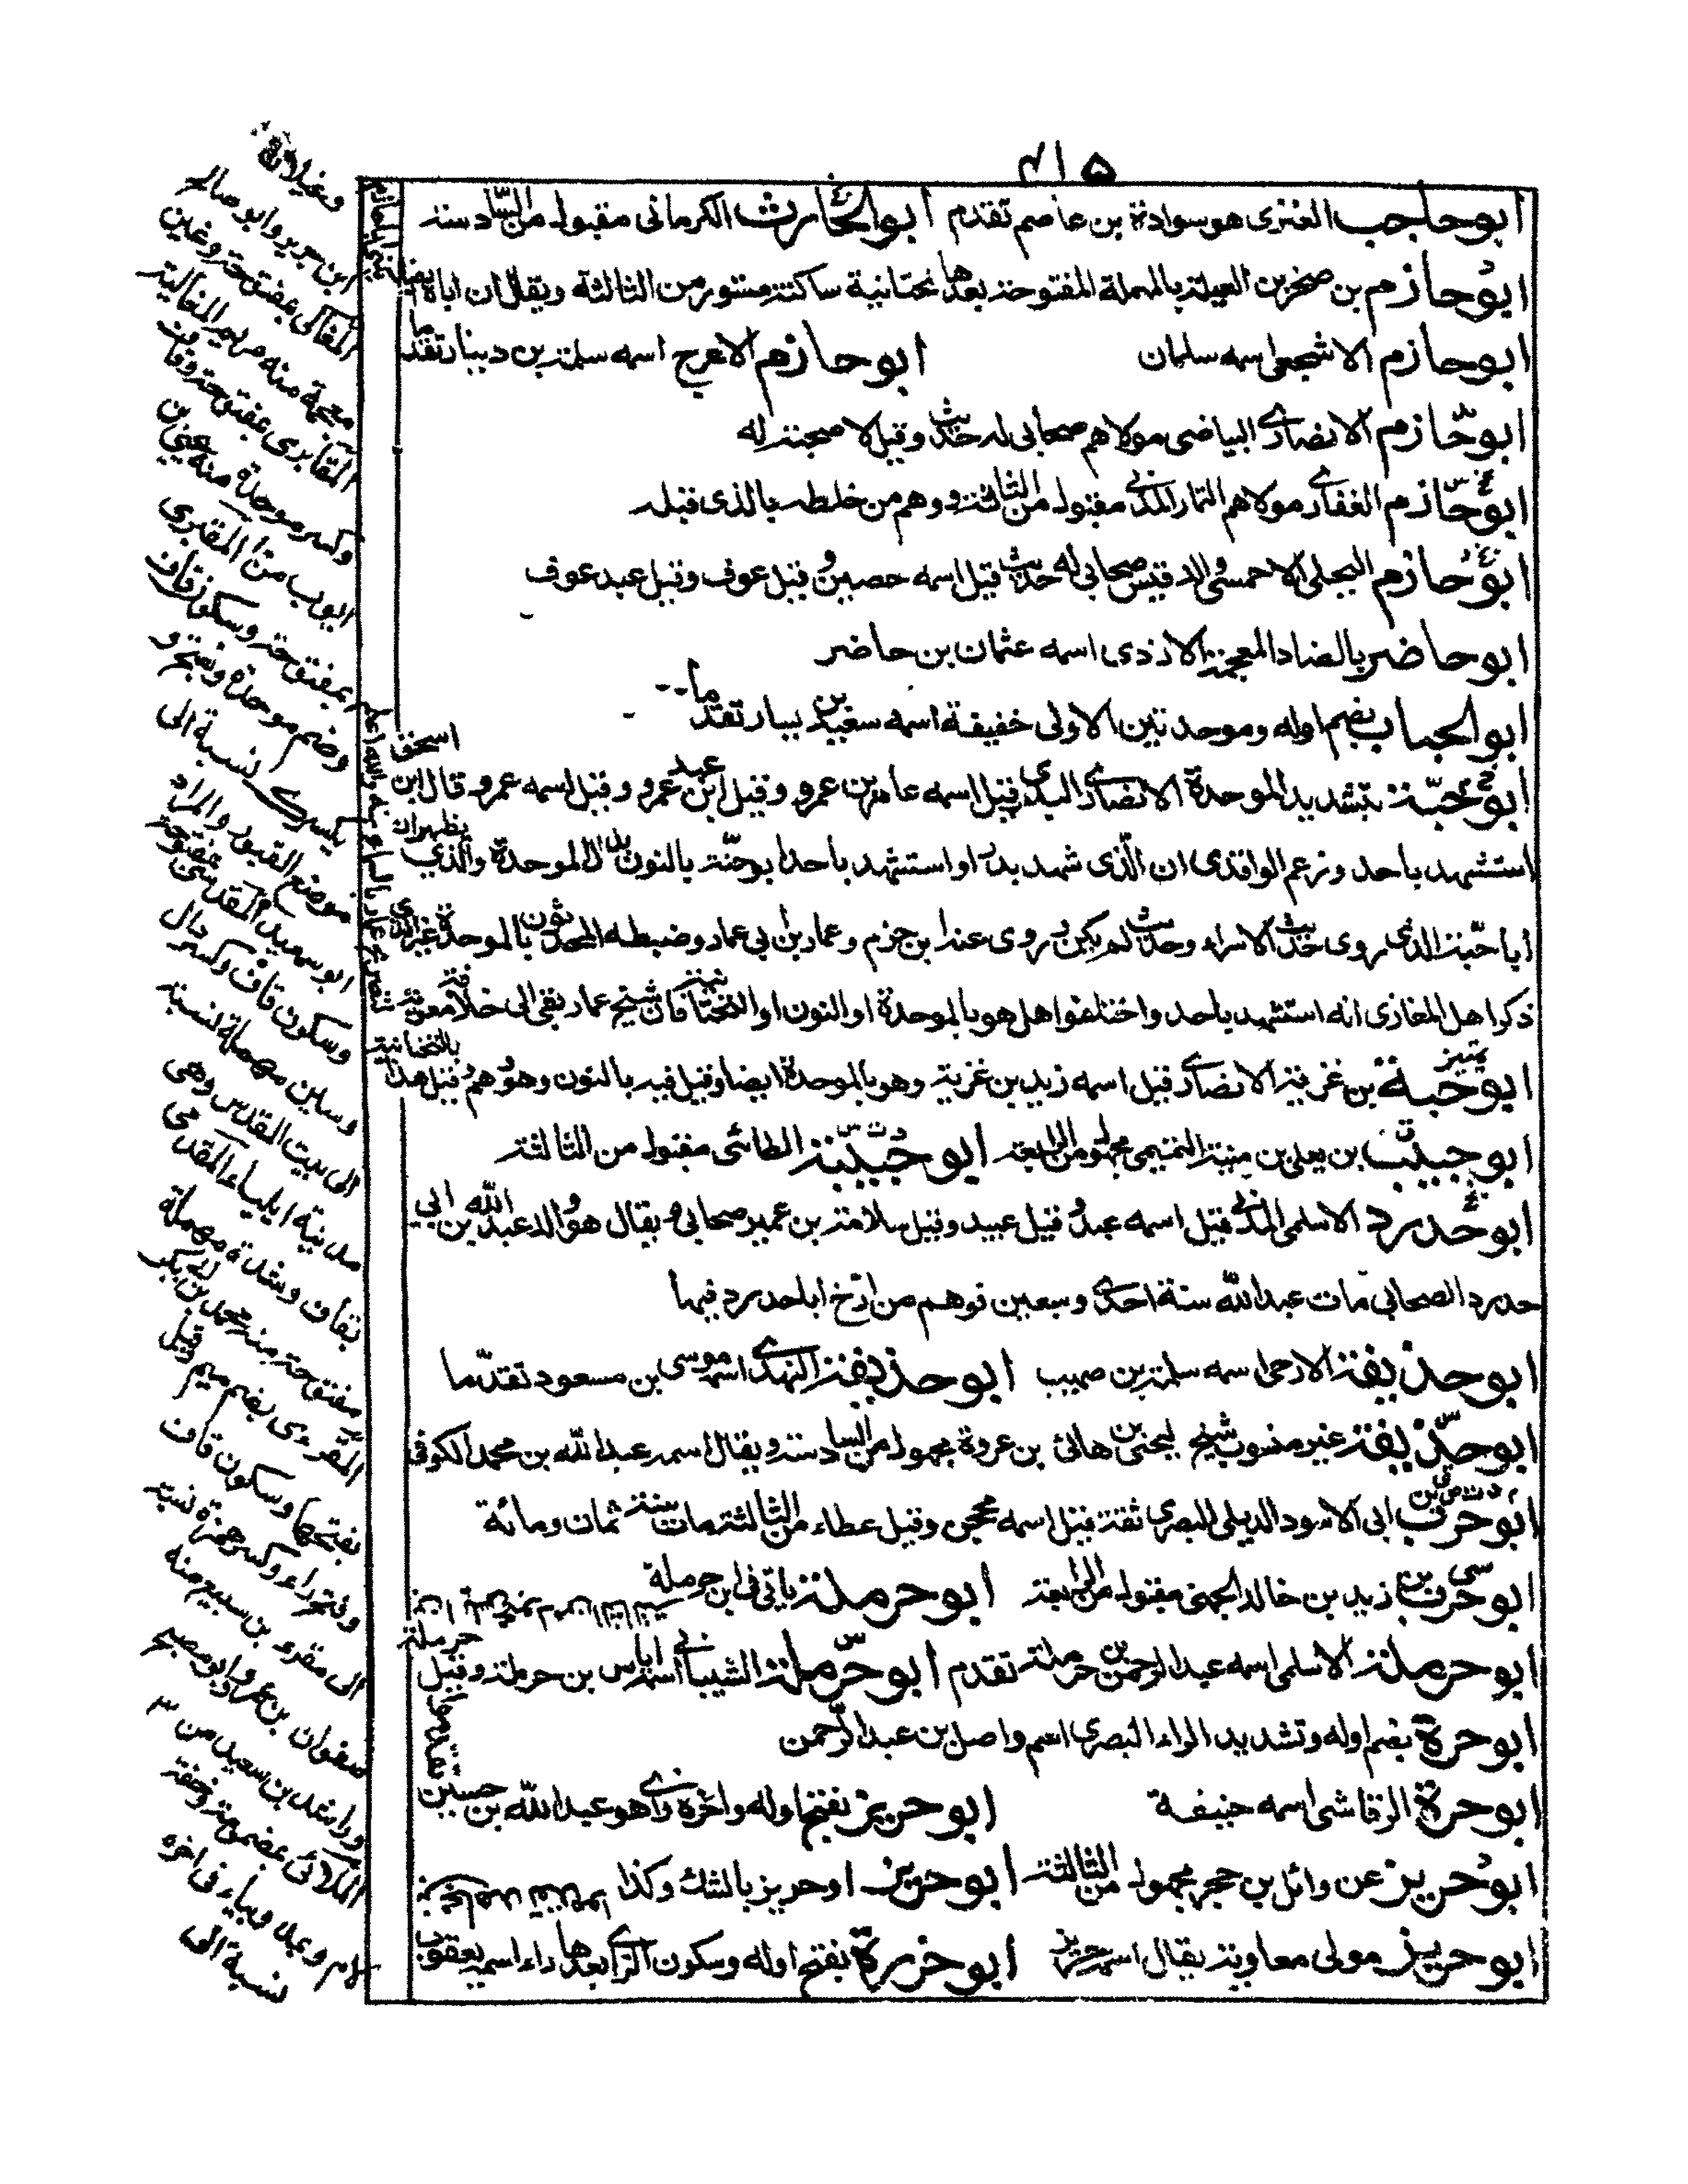 ٤١٥
ابو حاجب العنزى هو سوادة بن عاصم تقدم ابو الحارث الكرمانى مقبول من السادسة
ابو حازم بن صخر بن العيلة بالمهملة المفتوحة بعدها تحتانية ساكنة مستور من الثالثة ويقال ان اباه
ابو حازم الاشجعى اسمه سلمان ابو حازم الاعرج اسمه سلمة بن دينار تقدما
ابو حازم الانصارى البياضى مولاهم صحابى له حديث وقيل لا صحبة له
ابو حازم الغفارى مولاهم التمار المدنى مقبول من الثالثة ووهم من خلطه بالذى قبله
ابو حازم البجلى الاحمسى والد قيس صحابى له حديث قيل اسمه حصين وقيل عوف وقيل عبد عوف
ابو حاضر بالضاد المعجمة الازدى اسمه عثمان بن حاضر
ابو الحباب بضم اوله وموحدتين الاولى خفيفة اسمه سعيد بن يسار تقدما
ابو حبة بتشديد الموحدة الانصارى البدرى قيل اسمه عامر بن عمرو وقيل ابن عبد عمرو وقيل اسمه عمرو قال ابن اسحق
استشهد باحد وزعم الواقدى ان الذى شهد بدرا واستشهد باحد ابو حنة بالنون بدل الموحدة والذي يظهر ان
ابا حبة الذى روى حديث الاسراء وحديث لم يكن وروى عنه ابن حزم وعمار بن ابى عمار وضبطه المحدثون بالموحدة غير الذى
ذكر اهل المغازى انه استشهد باحد واختلفوا هل هو بالموحدة او النون او التحتانية فان شيخ عمار بقى الى خلافة معوية
ابو حبة بن غزية الانصارى قيل اسمه زيد بن غزية وهو بالموحدة ايضا وقيل فيه بالنون وهو وهم وقيل هذا بالتحتانية
ابو حبيب بن يعلى بن منية التميمى مجهول من الرابعة ابو حبيبة الطائى مقبول من الثالثة
ابو حدرد الاسلمى المدنى قيل اسمه عبد وقيل عبيد وقيل سلامة بن عمير صحابى ويقال هو والد عبد الله بن ابي
حدرد الصحابي مات عبد الله سنة احدى وسبعين فوهم من ارخ ابا حدرد فيها
ابو حذيفة الارحبى اسمه سلمة بن صهيب ابو حذيفة النهدى اسمه موسى بن مسعود تقدما
ابو حذيفة غير منسوب شيخ ليحيى بن هانئ بن عروة مجهول من السادسة ويقال اسمه عبد الله بن محمد الكوفى
ابو حرب بن ابى الاسود الديلى البصرى ثقة قيل اسمه محجن وقيل عطاء من الثالثة مات سنة ثمان ومائة
ابو حرب بن زيد بن خالد الجهنى مقبول من الرابعة ابو حرملة ياتى فى ابن حرملة
ابو حرملة الاسلمى اسمه عبد الرحمن بن حرملة تقدم ابو حرملة الشيبانى اسمه اياس بن حرملة وقيل حرملة
ابو حرة بضم اوله وتشديد الراء البصرى اسمه واصل بن عبد الرحمن
ابو حرة الرقاشى اسمه حنيفة ابو حريز بفتح اوله واخره زاى هو عبد الله بن حسين
ابو حريز عن وائل بن حجر مجهول من الثالثة ابو حريز او حريز بالشك وكذا
ابو حريز مولى معاوية يقال اسمه حريز ابو حزرة بفتح اوله وسكون الزاى بعدها راء اسمه يعقوب
وغيلانة
ابن جرير وابو صالح
معجمة منه مريم المغالية
المقابرى بمفتوحة وقاف
وكسر موحدة منه يحيى بن
ايوب من المقبرى
بمفتوحة وسكون قاف
وضم موحدة وفتح و
يكسر نسبة الى
موضع القبور والمراد
ابو سعيد المقدسى بمفتوحة
وسكون قاف وكسر دال
وسين مهملة نسبة
الى بيت القدس وهى
مدينة ايلياء المقدمى
بقاف وشدة مهملة
مفتوحة منه محمد بن ابى بكر
المقرءى بضم ميم وقيل
بفتحها وسكون قاف
وفتح راء وكسر همزة نسبة
الى مقرء بن سبيع منه
صفوان بن عمرو وابو مصبح
وراشد بن سعيد من
الملائى بمضمومة وخفة
لام وبمد وبياء فى اخره
نسبة الى